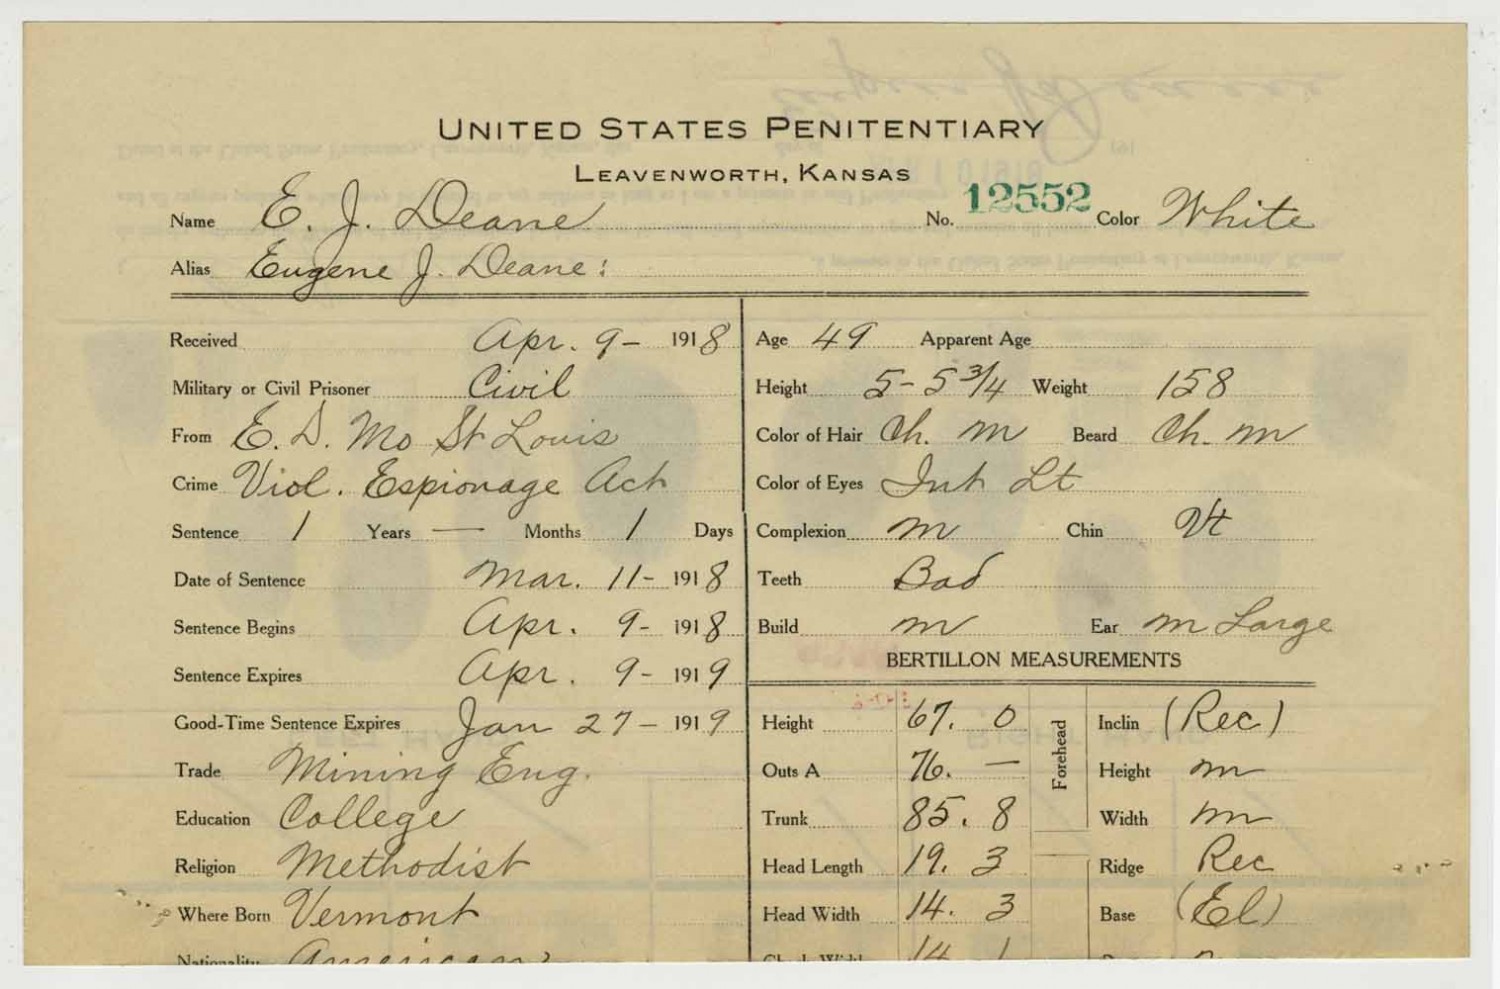 UNITED STATES PENITENTIARY
LEAVENWORTH, KANSAS
Name E. J. Deane No. 12552 Color White
Alias Eugene J. Deane:
Received Apr. 9- 1918
Military or Civil Prisoner Civil
From E. D. Mo St Louis
Crime Viol. Espionage Act
Sentence 1 Years — Months 1 Days
Date of Sentence Mar. 11- 1918
Sentence Begins Apr. 9- 1918
Sentence Expires Apr. 9- 1919
Good-Time Sentence Expires Jan 27- 1919
Trade Mining Eng.
Education College
Religion Methodist
Where Born Vermont
Nationality American
Age 49 Apparent Age
Height 5-5 3/4 Weight 158
Color of Hair Ch. m Beard Ch. m
Color of Eyes Int Lt
Complexion m Chin Vt
Teeth Bad
Build m Ear m Large
BERTILLON MEASUREMENTS
Height 67. 0 Forehead Inclin (Rec)
Outs A 76. — Height m
Trunk 85. 8 Width m
Head Length 19. 3 Ridge Rec
Head Width 14. 3 Base (El)
14 1